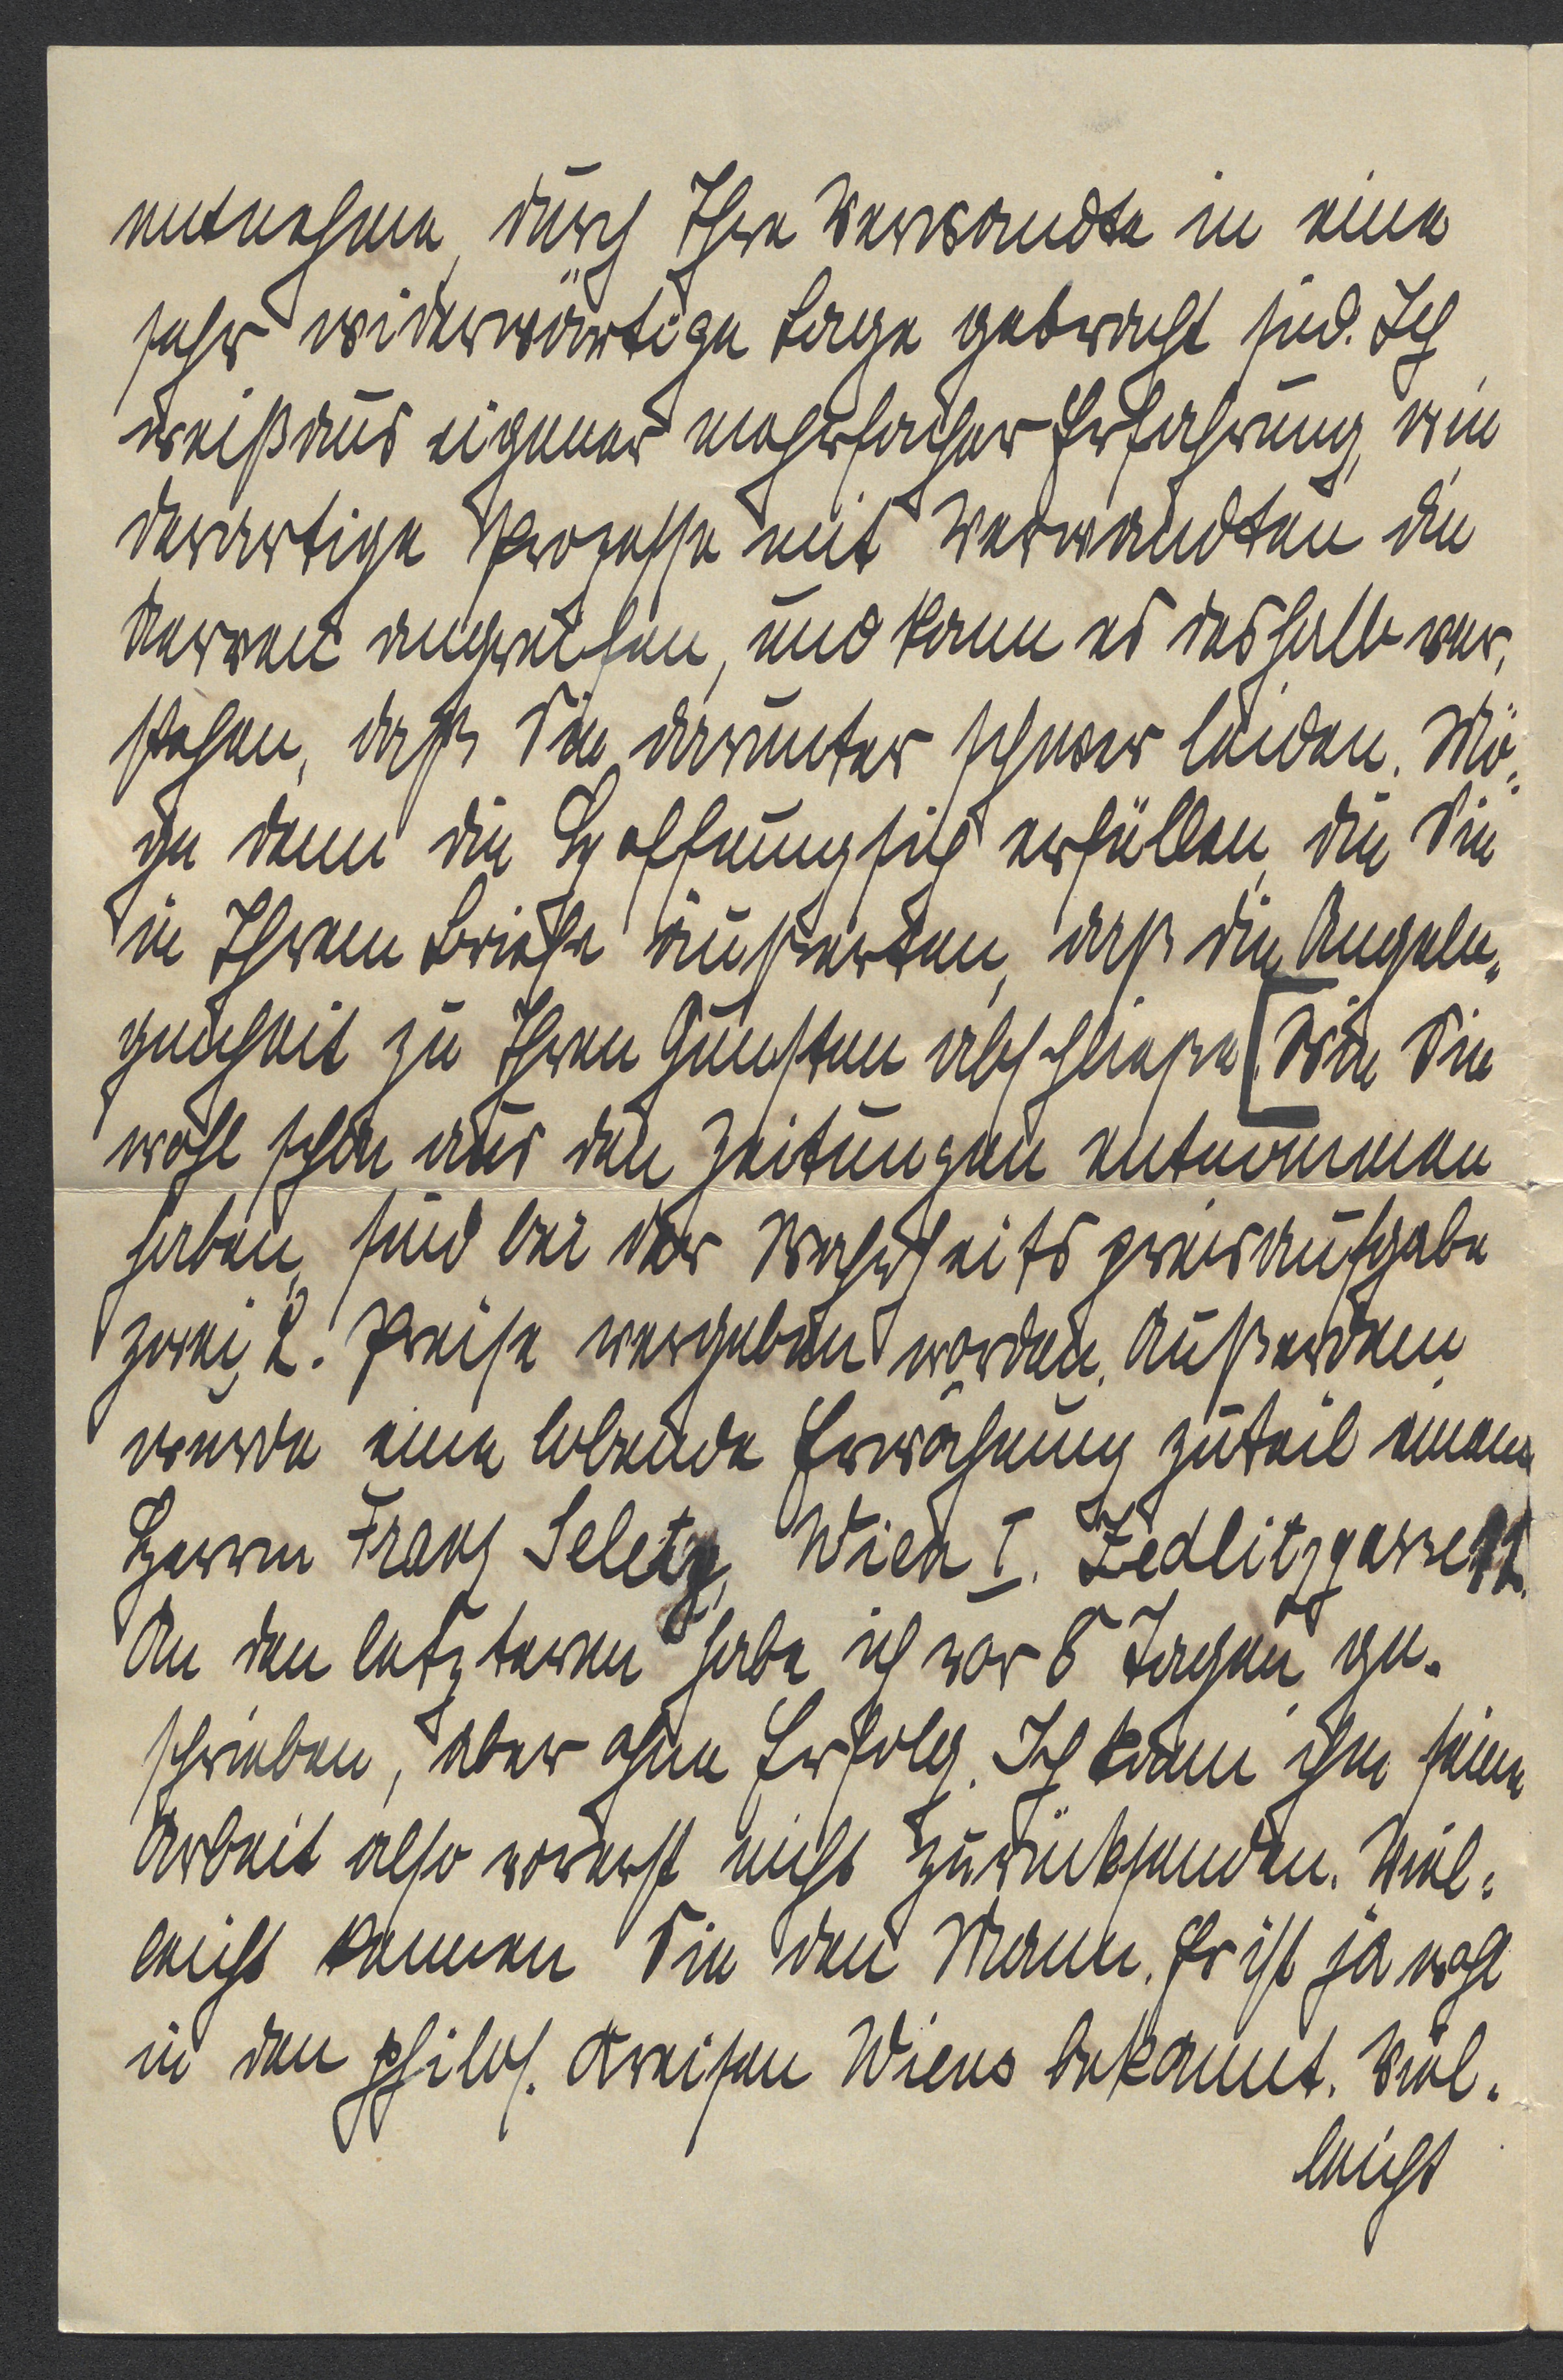 entnehme, durch Ihre Verwandte in eine
sehr widerwärtige Lage gebracht sind. Ich
weiß aus eigener mehrfacher Erfahrung, wie
derartige Prozesse mit Verwandten die
Nerven angreifen, und kann es deshalb ver-
stehen, daß Sie darunter schwer leiden. Mö-
ge denn die Hoffnung sich erfüllen, die Sie
in Ihrem Briefe äußerten, daß die Angele-
genheit zu Ihren Gunsten abschließe. [Wie Sie
wohl schon aus den Zeitungen entnommen
haben, sind bei der Wahrheitspreisaufgabe
zwei 2. Preise vergeben worden. Außerdem
wurde eine lobende Erwähnung zuteil einem
Herrn Franz Selety, Wien I. Zedlitzgasse 11.
An den letzteren habe ich vor 8 Tagen ge-
schrieben, aber ohne Erfolg. Ich kann ihm seine
Arbeit also vorerst nicht zurücksenden. Viel-
leicht kennen Sie den Mann. Er ist ja wohl
in den philos. Kreisen Wiens bekannt. Viel-
leicht